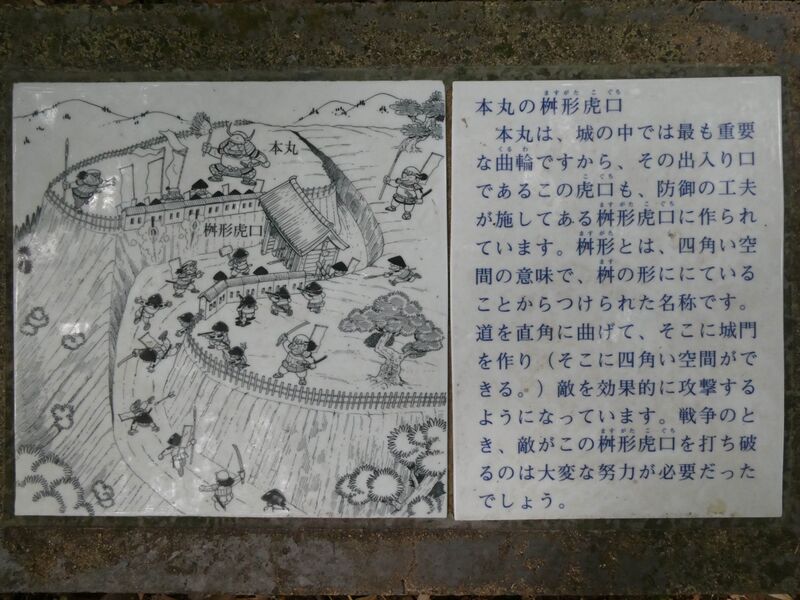 本丸
桝形虎口
本丸の桝形虎口
ますがた こ ぐち
本丸は、城の中では最も重要
な曲輪ですから、その出入り口
くる わ
であるこの虎口も、防御の工夫
こ ぐち
が施してある桝形虎口に作られ
ますがた こ ぐち
ています。桝形とは、四角い空
ますがた
間の意味で、桝の形ににている
ます
ことからつけられた名称です。
道を直角に曲げて、そこに城門
を作り（そこに四角い空間がで
きる。）敵を効果的に攻撃する
ようになっています。戦争のと
き、敵がこの桝形虎口を打ち破
ますがた こ ぐち
るのは大変な努力が必要だった
でしょう。